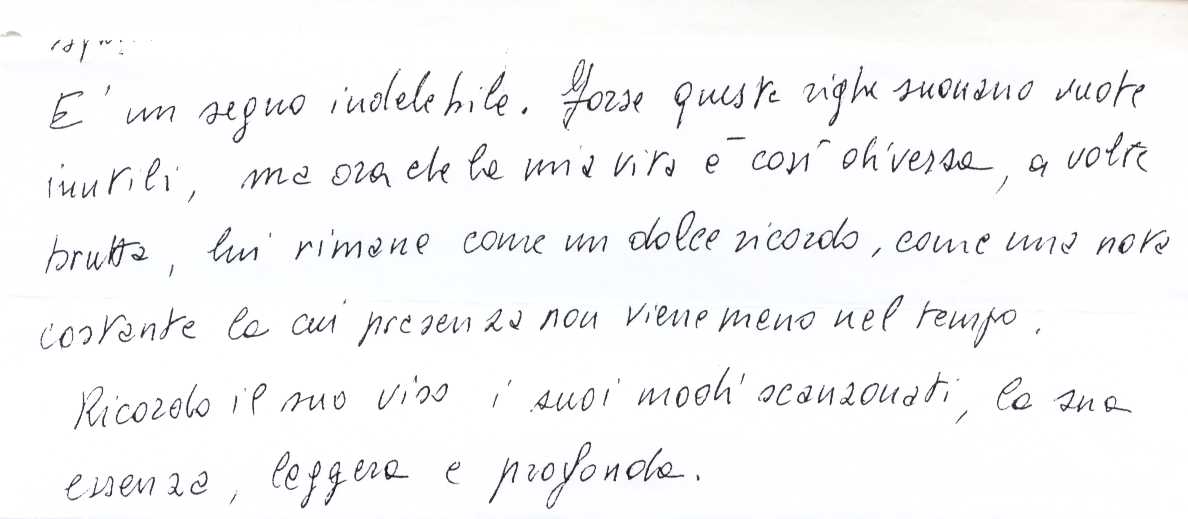 E' un segno indelebile. Forse queste righe suonano vuote
inutili, ma ora che la mia vita è così diversa, a volte
brutta, lui rimane come un dolce ricordo, come una nota
costante la cui presenza non viene meno nel tempo.
Ricordo il suo viso i suoi modi scanzonati, la sua
essenza, leggera e profonda.